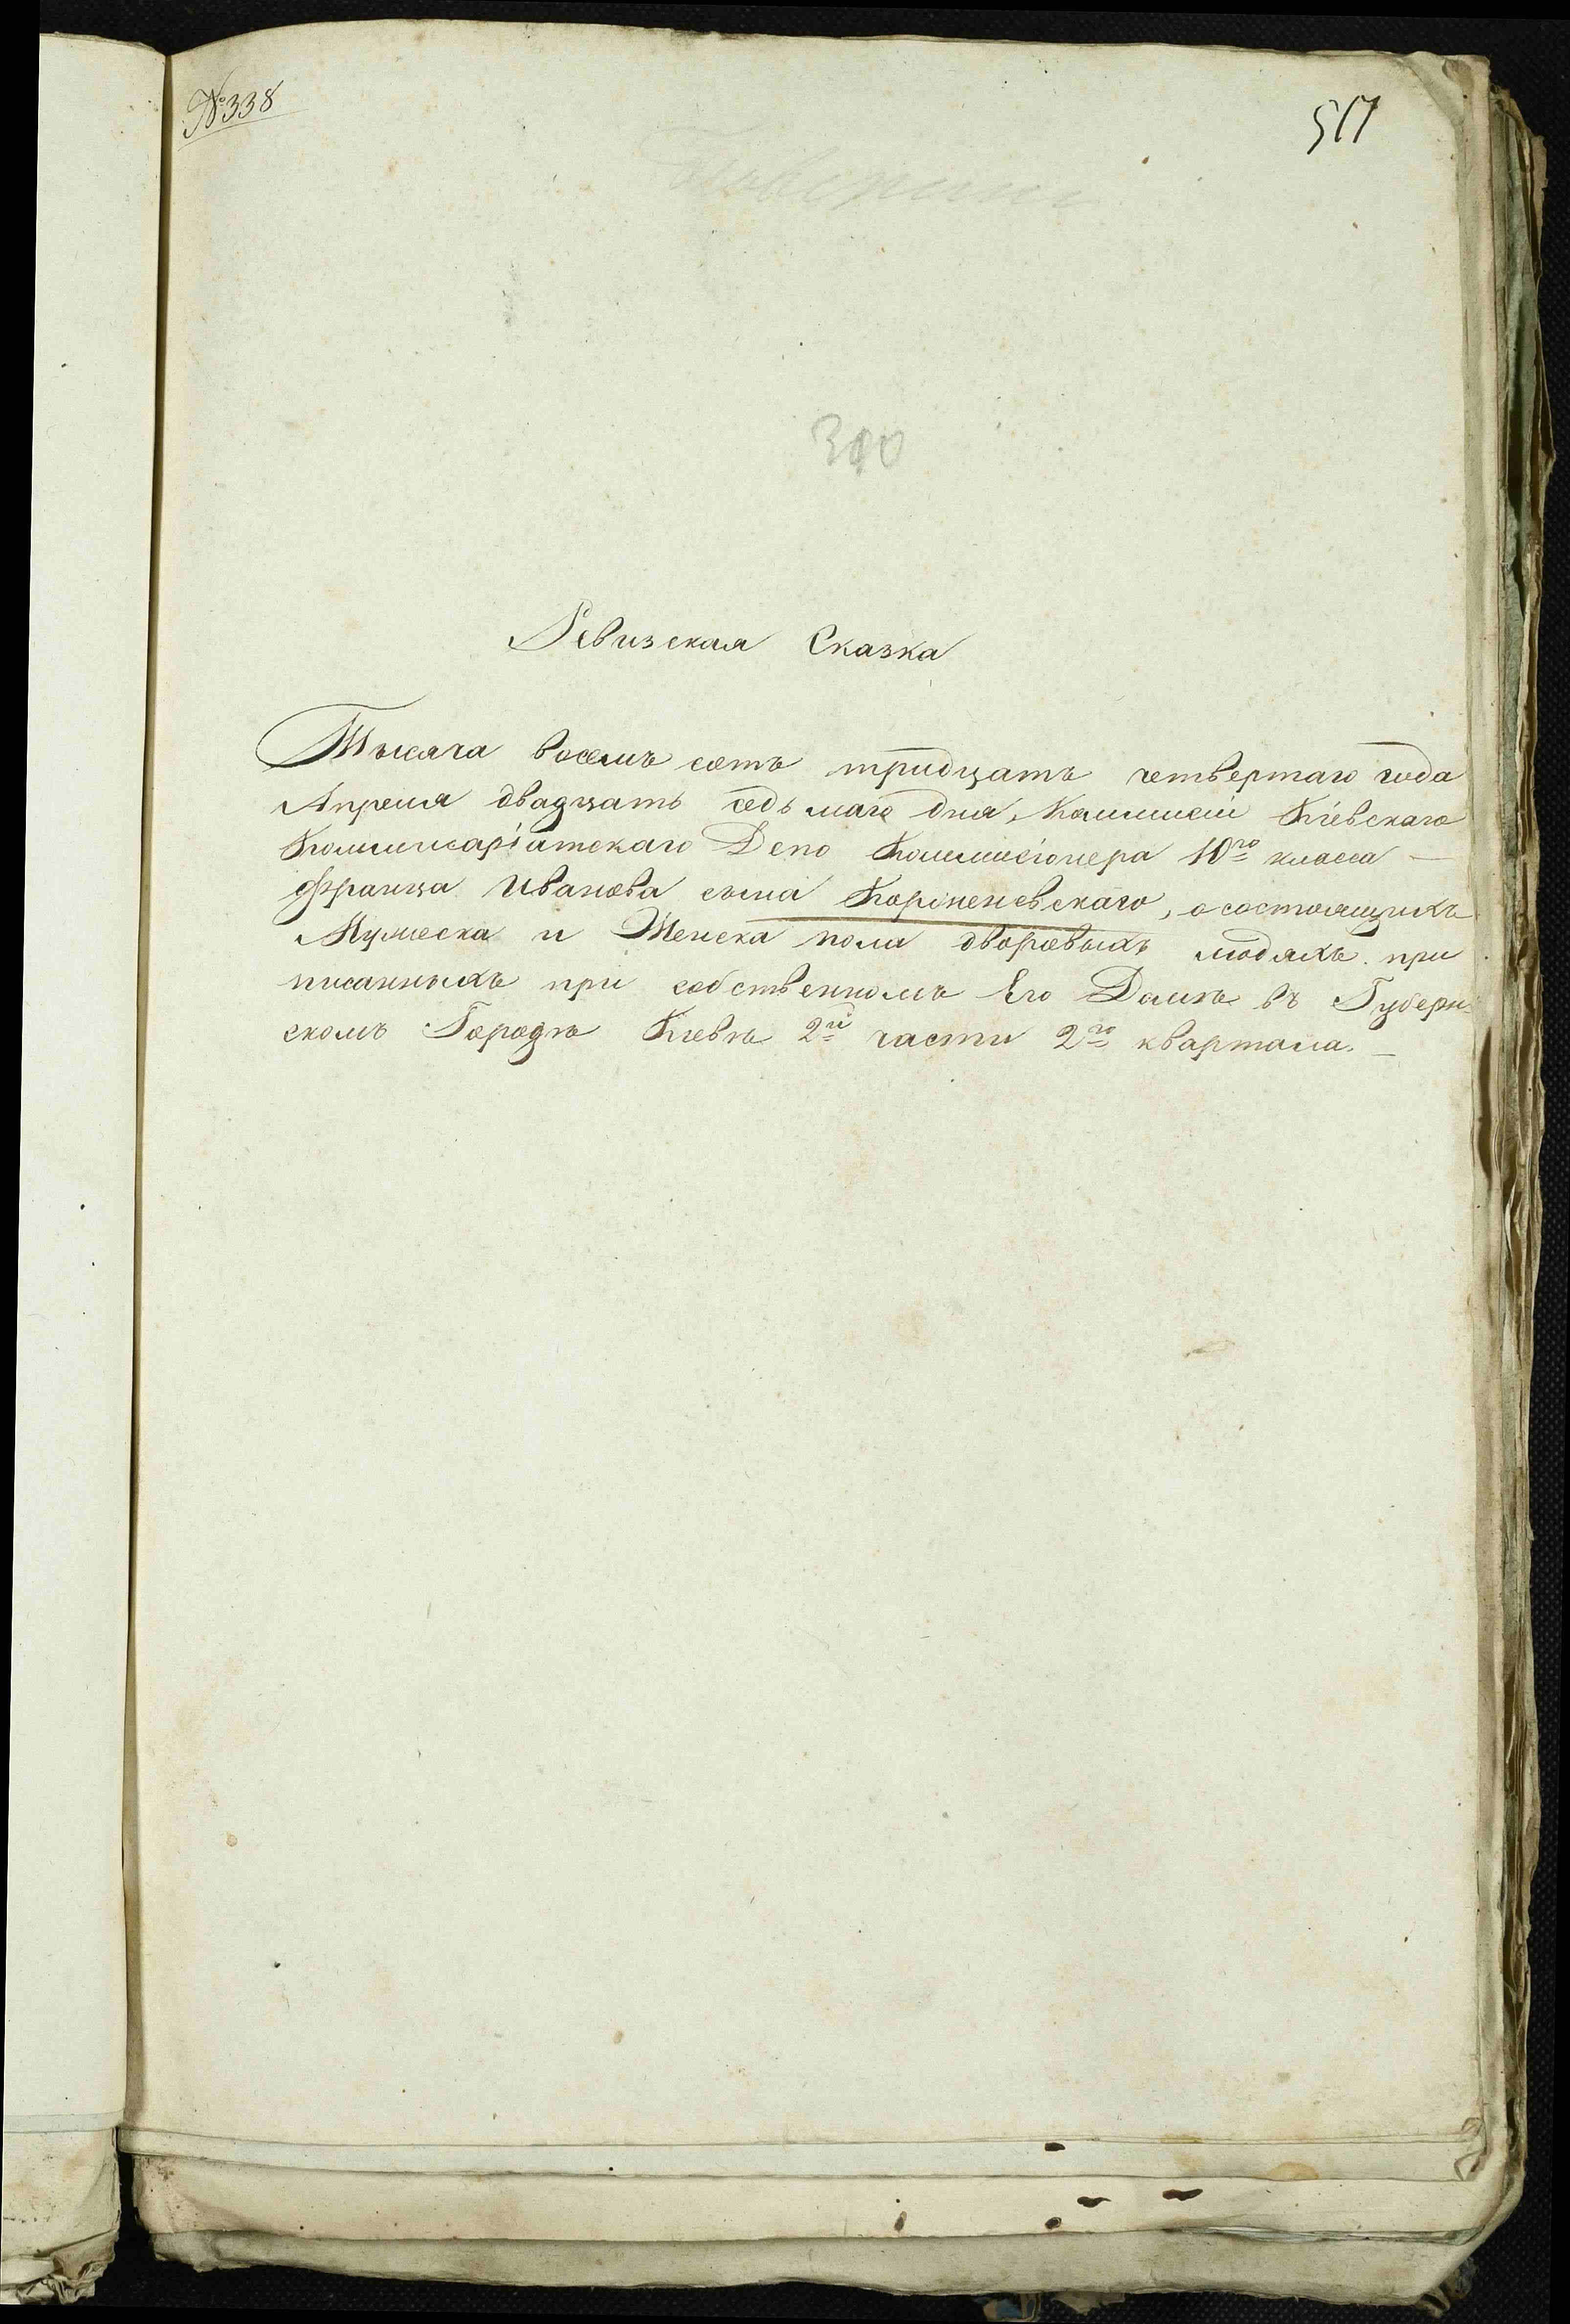 № 338
517
300
Ревизская Сказка
Тысяча восемъ сотъ тридцать четвертаго года
Апреля двадцать седьмаго дня, Коммисіи Кіевскаго
Коммисаріатскаго Депо Коммисіонера 10го класса —
Франца Иванова сына, о состоящихъ
Мужеска и Женска пола дворовыхъ людяхъ при
писанныхъ при собственномъ Его Домѣ въ Губерн-
скомъ Городѣ Кіевѣ 2й части 2го квартала. —